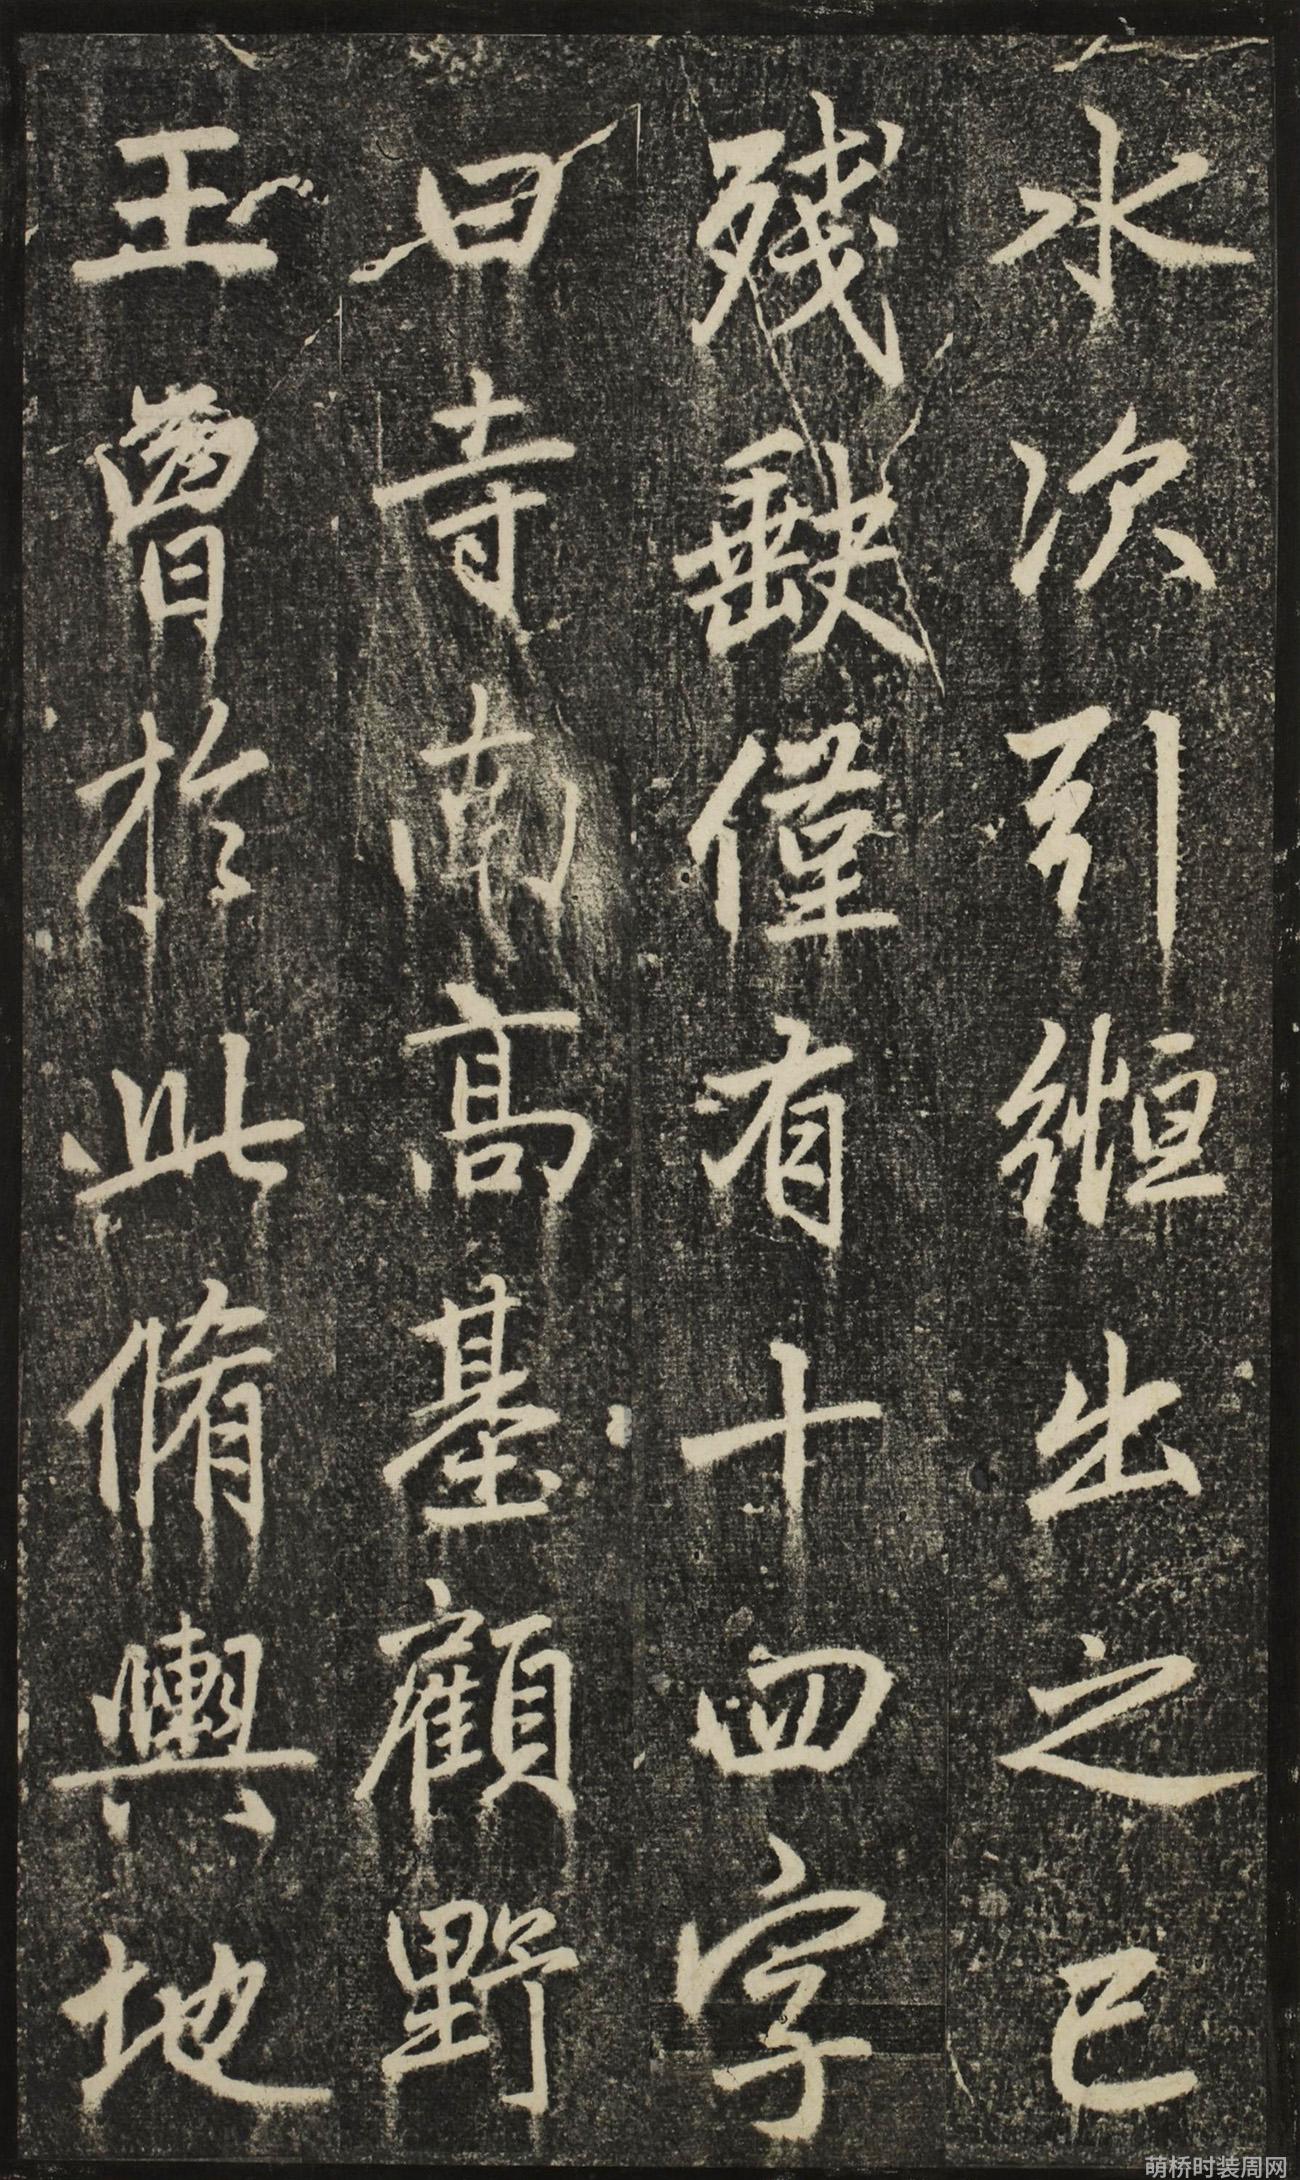 水次引縆出之已
残缺僅有十四字
曰寺南高基顧野
王曾於此脩輿地
萌桥时装周网